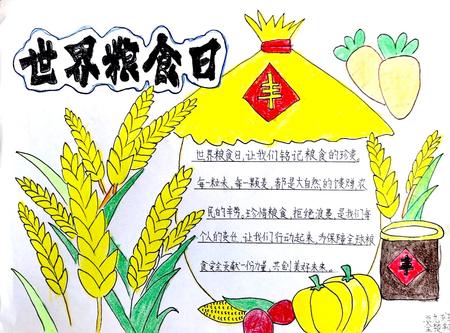 世界粮食日
丰
世界粮食日,让我们铭记粮食的珍贵。
每一粒米,每一颗麦,都是大自然的馈赠,农
民的辛劳。珍惜粮食,拒绝浪费,是我们每
个人的责任,让我们行动起来,为保障全球粮
食安全贡献一份力量,共创美好未来。
丰